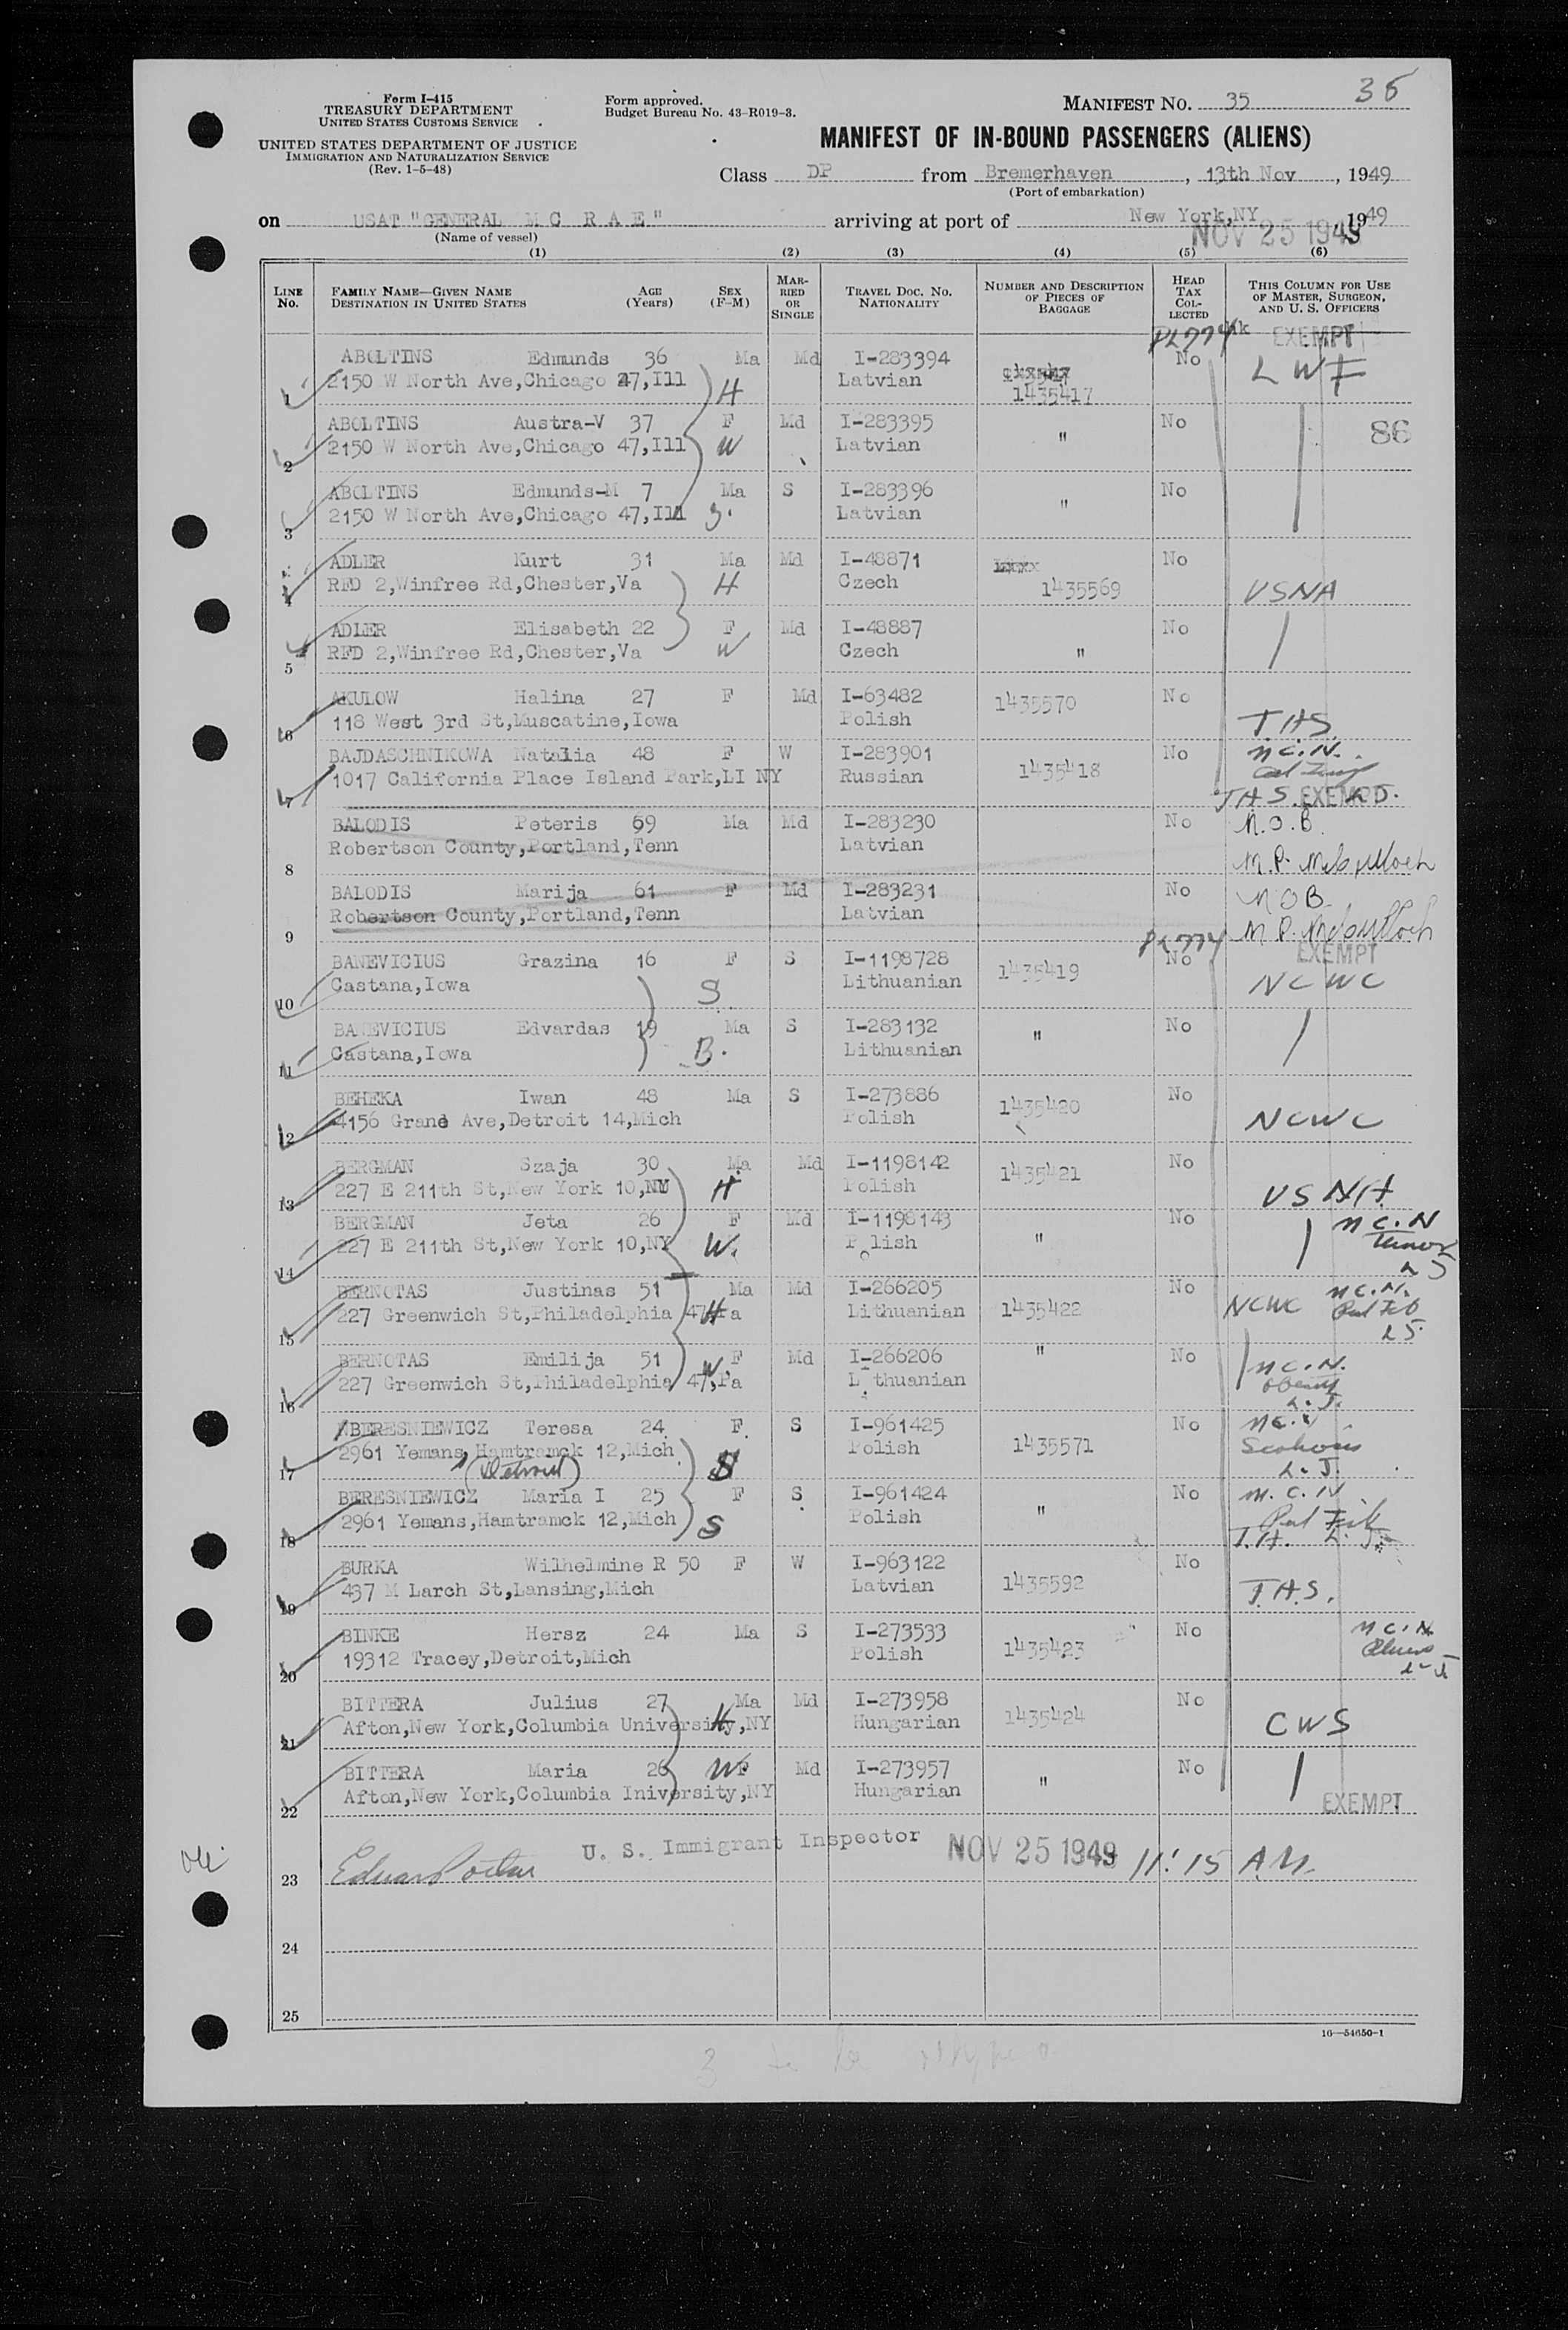 Form I-415
TREASURY DEPARTMENT
UNITED STATES CUSTOMS SERVICE
UNITED STATES DEPARTMENT OF JUSTICE
IMMIGRATION AND NATURALIZATION SERVICE
(Rev. 1-5-48)
Form approved.
Budget Bureau No. 43-R019-3.
MANIFEST NO. 35
36
MANIFEST OF IN-BOUND PASSENGERS (ALIENS)
Class DP from Bremerhaven, 13th Nov, 1949
(Port of embarkation)
on USAT "GENERAL M C R A E" arriving at port of New York,NY 1949
(Name of vessel)
NOV 25 1949
(1) (2) (3) (4) (5) (6)
LINE No. FAMILY NAME—GIVEN NAME DESTINATION IN UNITED STATES AGE (Years) SEX (F-M) MARRIED OR SINGLE TRAVEL DOC. NO. NATIONALITY NUMBER AND DESCRIPTION OF PIECES OF BAGGAGE HEAD TAX COLLECTED THIS COLUMN FOR USE OF MASTER, SURGEON, AND U. S. OFFICERS
PL 774 EXEMPT
ABOLTINS Edmunds 36 Ma Md I-283394 No LWF
1 2150 W North Ave,Chicago 47,Ill H Latvian 1435417
ABOLTINS Austra-V 37 F Md I-283395 " No 86
2 2150 W North Ave,Chicago 47,Ill W Latvian
ABOLTINS Edmunds-M 7 Ma S I-283396 " No
3 2150 W North Ave,Chicago 47,Ill S. Latvian
ADLER Kurt 31 Ma Md I-48871 No
4 RFD 2,Winfree Rd,Chester,Va H Czech 1435569 USNA
ADLER Elisabeth 22 F Md I-48887 No
5 RFD 2,Winfree Rd,Chester,Va W Czech "
AKULOW Halina 27 F Md I-63482 1435570 No
6 118 West 3rd St,Muscatine,Iowa Polish T.H.S.
BAJDASCHNIKOWA Natalia 48 F W I-283901 No M.C.N.
7 1017 California Place Island Park,LI NY Russian 1435418
THS. EXEMPT L.J.
BALODIS Peteris 69 Ma Md I-283230 No N.O.B.
8 Robertson County,Portland,Tenn Latvian M.P. McCulloch
BALODIS Marija 61 F Md I-283231 No NOB
9 Robertson County,Portland,Tenn Latvian M.P. McCulloch
PL 774 EXEMPT
BANEVICIUS Grazina 16 F S I-1198728 1435419 No
10 Castana,Iowa S Lithuanian NCWC
BANEVICIUS Edvardas 19 Ma S I-283132 " No
11 Castana,Iowa B. Lithuanian
BEHEKA Iwan 48 Ma S I-273886 1435420 No
12 4156 Grand Ave,Detroit 14,Mich Polish NCWC
BERGMAN Szaja 30 Ma Md I-1198142 1435421 No
13 227 E 211th St,New York 10,NY H Polish USNA
BERGMAN Jeta 26 F Md I-1198143 " No M.C.N
14 227 E 211th St,New York 10,NY W. Polish L J
BERNOTAS Justinas 51 Ma Md I-266205 No M.C.N.
15 227 Greenwich St,Philadelphia 47,Pa H Lithuanian 1435422 NCWC
L J.
BERNOTAS Emilija 51 F Md I-266206 " No M.C.N.
16 227 Greenwich St,Philadelphia 47,Pa W Lithuanian L.J.
BERESNIEWICZ Teresa 24 F S I-961425 No
17 2961 Yemans,Hamtramck 12,Mich S Polish 1435571
(Detroit) L.J.
BERESNIEWICZ Maria I 25 F S I-961424 " No M.C.N
18 2961 Yemans,Hamtramck 12,Mich S Polish
BURKA Wilhelmine R 50 F W I-963122 1435592 No
19 437 M Larch St,Lansing,Mich Latvian T.H.S.
BINKE Hersz 24 Ma S I-273533 1435423 No M.C.N
20 19312 Tracey,Detroit,Mich Polish
BITTERA Julius 27 Ma Md I-273958 1435424 No
21 Afton,New York,Columbia University,NY H Hungarian CWS
BITTERA Maria 26 F Md I-273957 " No
22 Afton,New York,Columbia Iniversity,NY W Hungarian EXEMPT
U. S. Immigrant Inspector NOV 25 1949 11:15 A.M.
23
24
25
16—54650-1